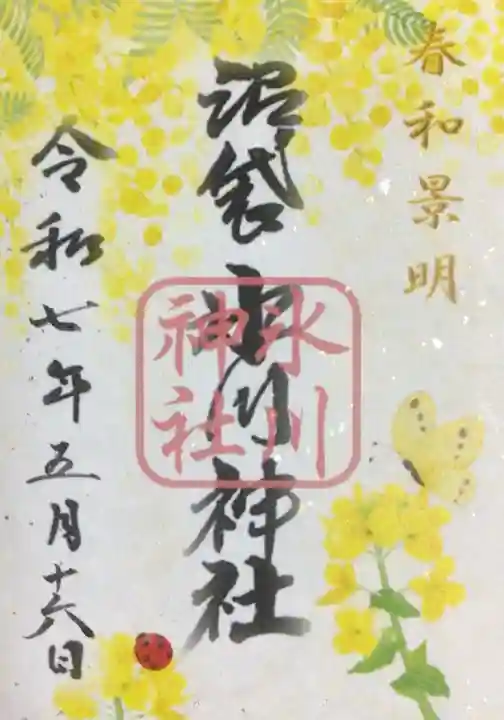 春和景明
沼袋 氷川神社
氷川
神社
令和七年五月十六日